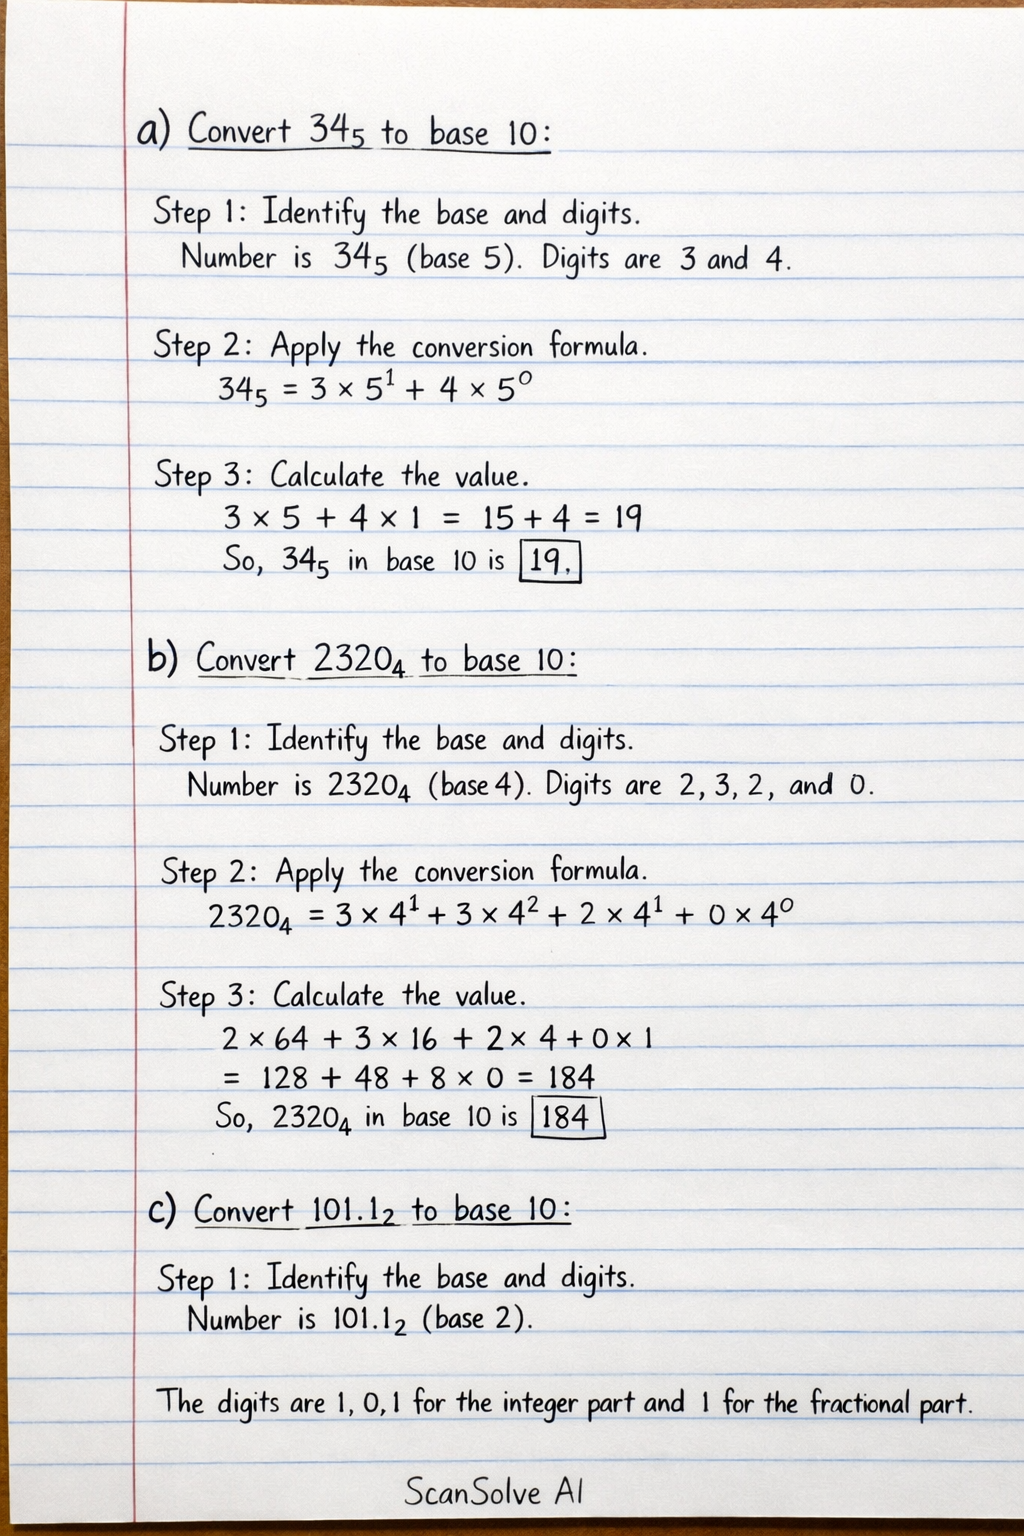 a) Convert 34₅ to base 10:
Step 1: Identify the base and digits.
Number is 34₅ (base 5). Digits are 3 and 4.
Step 2: Apply the conversion formula.
34₅ = 3 × 5¹ + 4 × 5⁰
Step 3: Calculate the value.
3 × 5 + 4 × 1 = 15 + 4 = 19
So, 34₅ in base 10 is 19.
b) Convert 2320₄ to base 10:
Step 1: Identify the base and digits.
Number is 2320₄ (base 4). Digits are 2, 3, 2, and 0.
Step 2: Apply the conversion formula.
2320₄ = 3 × 4¹ + 3 × 4² + 2 × 4¹ + 0 × 4⁰
Step 3: Calculate the value.
2 × 64 + 3 × 16 + 2 × 4 + 0 × 1
= 128 + 48 + 8 × 0 = 184
So, 2320₄ in base 10 is 184
c) Convert 101.1₂ to base 10:
Step 1: Identify the base and digits.
Number is 101.1₂ (base 2).
The digits are 1, 0, 1 for the integer part and 1 for the fractional part.
ScanSolve AI